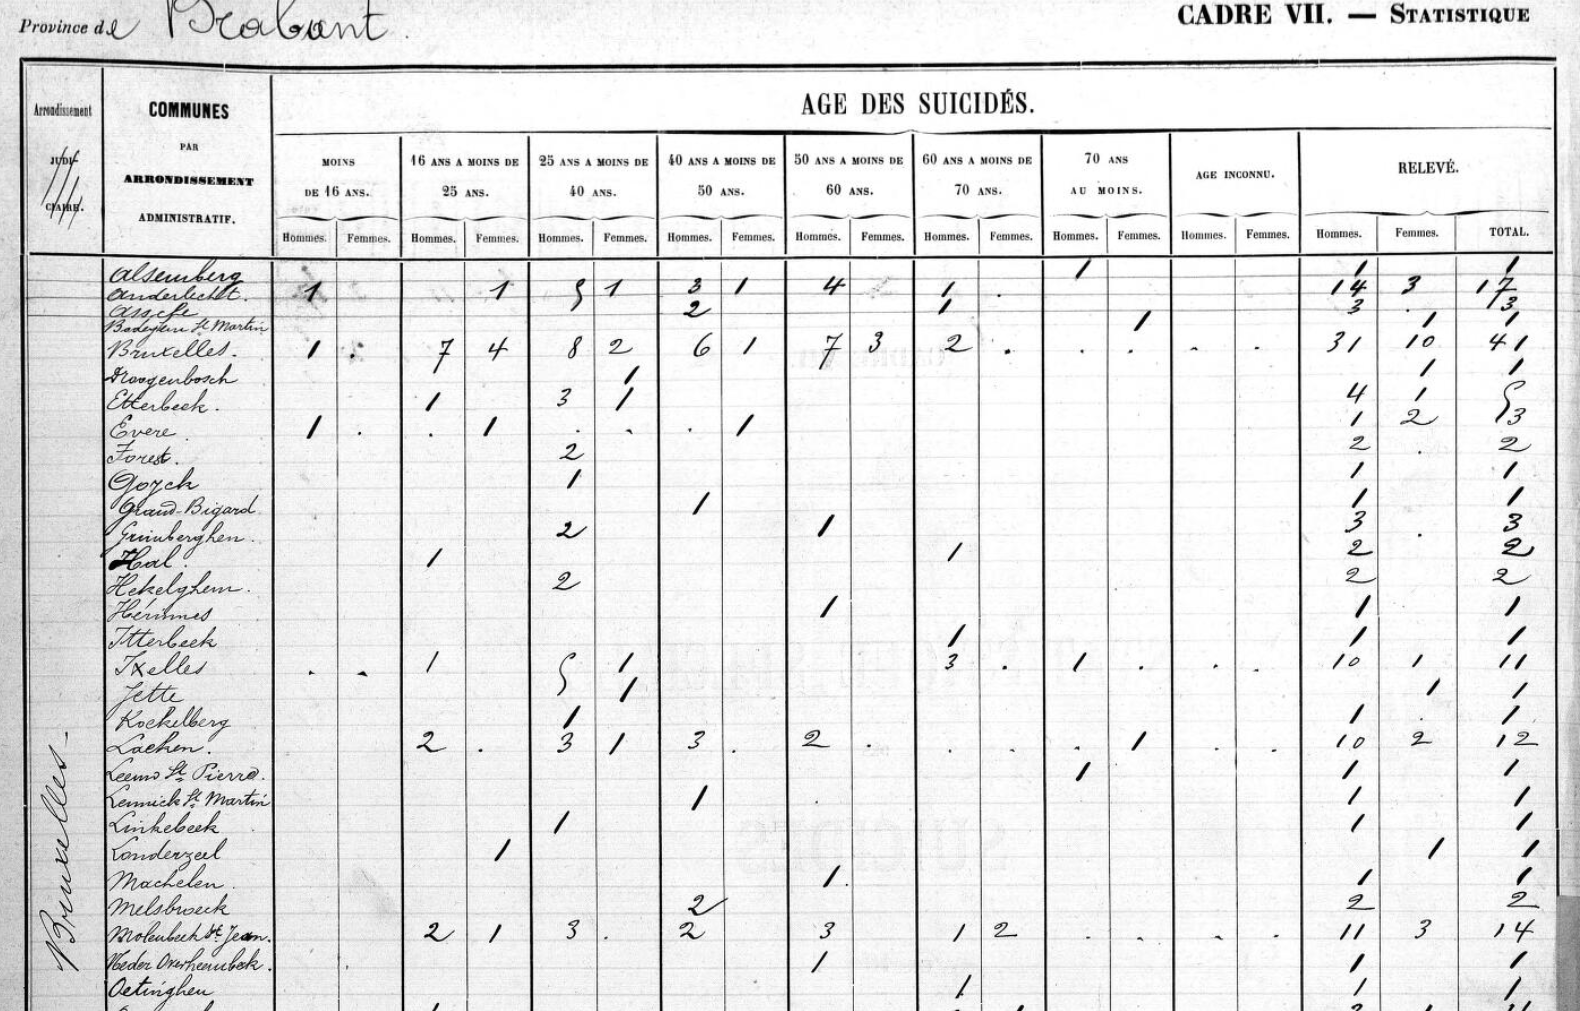 Province de Brabant.
CADRE VII. — STATISTIQUE
Arrondissement
JUDI-
CIAIRE.
COMMUNES
PAR
ARRONDISSEMENT
ADMINISTRATIF.
AGE DES SUICIDÉS.
MOINS DE 16 ANS. 16 ANS A MOINS DE 25 ANS. 25 ANS A MOINS DE 40 ANS. 40 ANS A MOINS DE 50 ANS. 50 ANS A MOINS DE 60 ANS. 60 ANS A MOINS DE 70 ANS. 70 ANS AU MOINS. AGE INCONNU. RELEVÉ.
Hommes. Femmes. Hommes. Femmes. Hommes. Femmes. Hommes. Femmes. Hommes. Femmes. Hommes. Femmes. Hommes. Femmes. Hommes. Femmes. Hommes. Femmes. TOTAL.
Bruxelles
Alsemberg 1 1 1
Anderlecht. 1 1 5 1 3 1 4 1 . 14 3 17
Assche 2 1 3 . 3
Bodeghem St Martin 1 1 1
Bruxelles. 1 . 7 4 8 2 6 1 7 3 2 . . . . . 31 10 41
Droogenbosch 1 1 1
Etterbeek. 1 3 1 4 1 5
Evere. 1 . . 1 . . . 1 1 2 3
Forest. 2 2 . 2
Goyck 1 1 1
Grand-Bigard 1 1 1
Grimberghen. 2 1 3 . 3
Hal. 1 1 2 2
Hekelghem. 2 2 2
Hérinnes 1 1 1
Itterbeek 1 1 1
Ixelles . . 1 5 1 3 . 1 . . . 10 1 11
Jette 1 1 1
Koekelberg 1 1 . 1
Laeken. 2 . 3 1 3 . 2 . . . . 1 . . 10 2 12
Leeuw St Pierre. 1 1 1
Lennick St Martin 1 1 1
Linkebeek 1 1 1
Londerzeel 1 1 1
Machelen. 1 1 1
Melsbroeck 2 2 2
Molenbeek St Jean. 2 1 3 . 2 3 1 2 . . . . 11 3 14
Neder Overheembeek. 1 1 1
Oetinghen 1 1 1